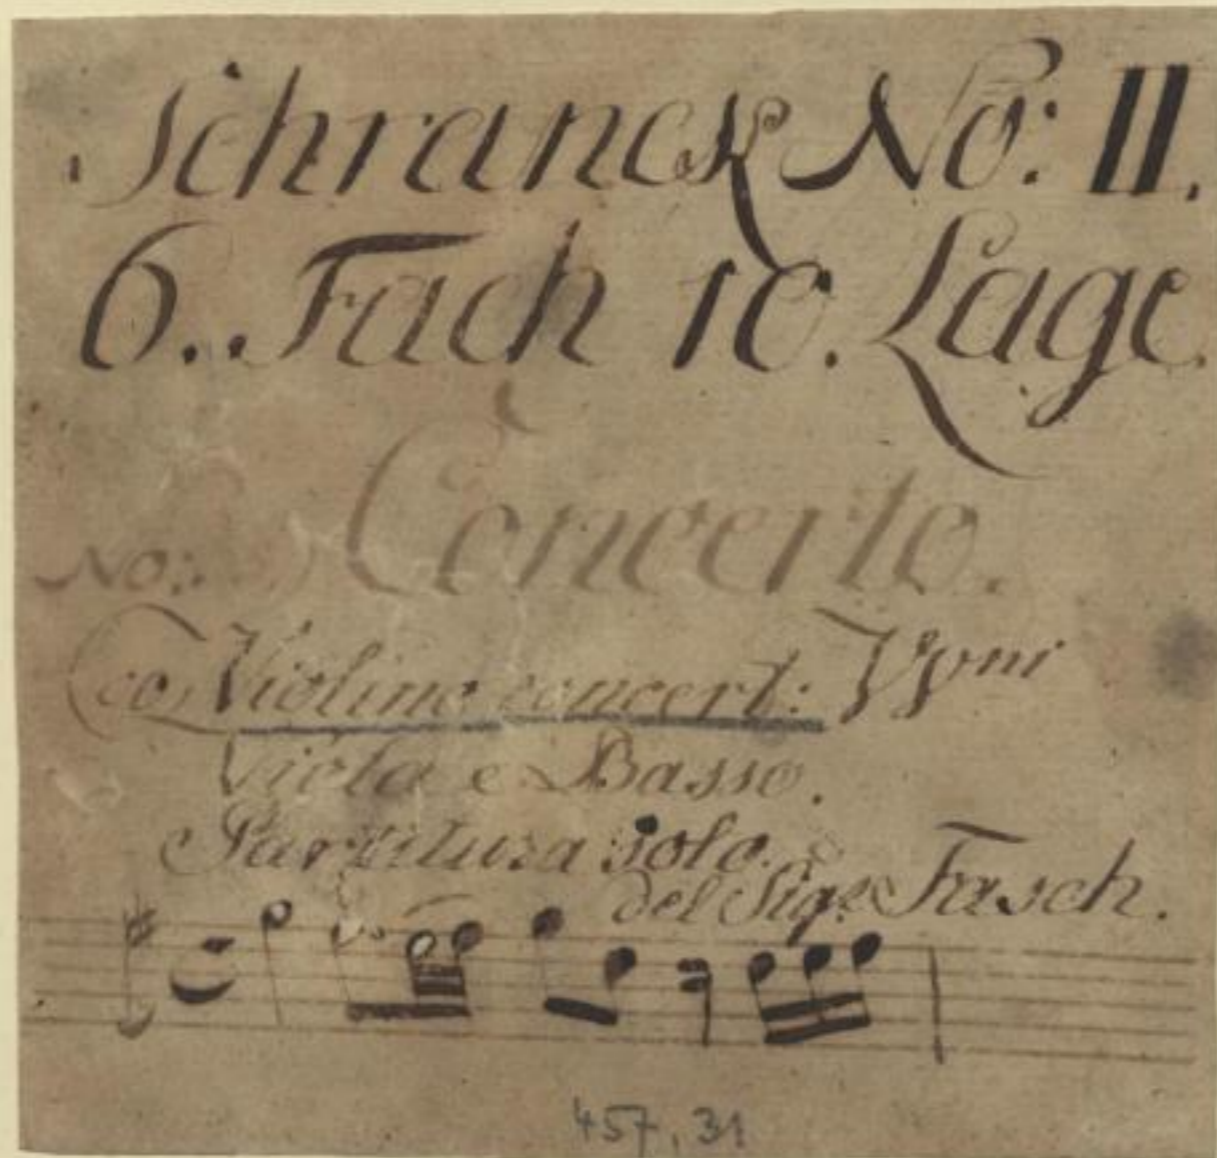 Schranck No: II.
6. Fach 10. Lage
Concerto.
No:
co Violino concert: VVni
Viola e Basso.
Partitura solo.
del Sigr Fasch.
457,31